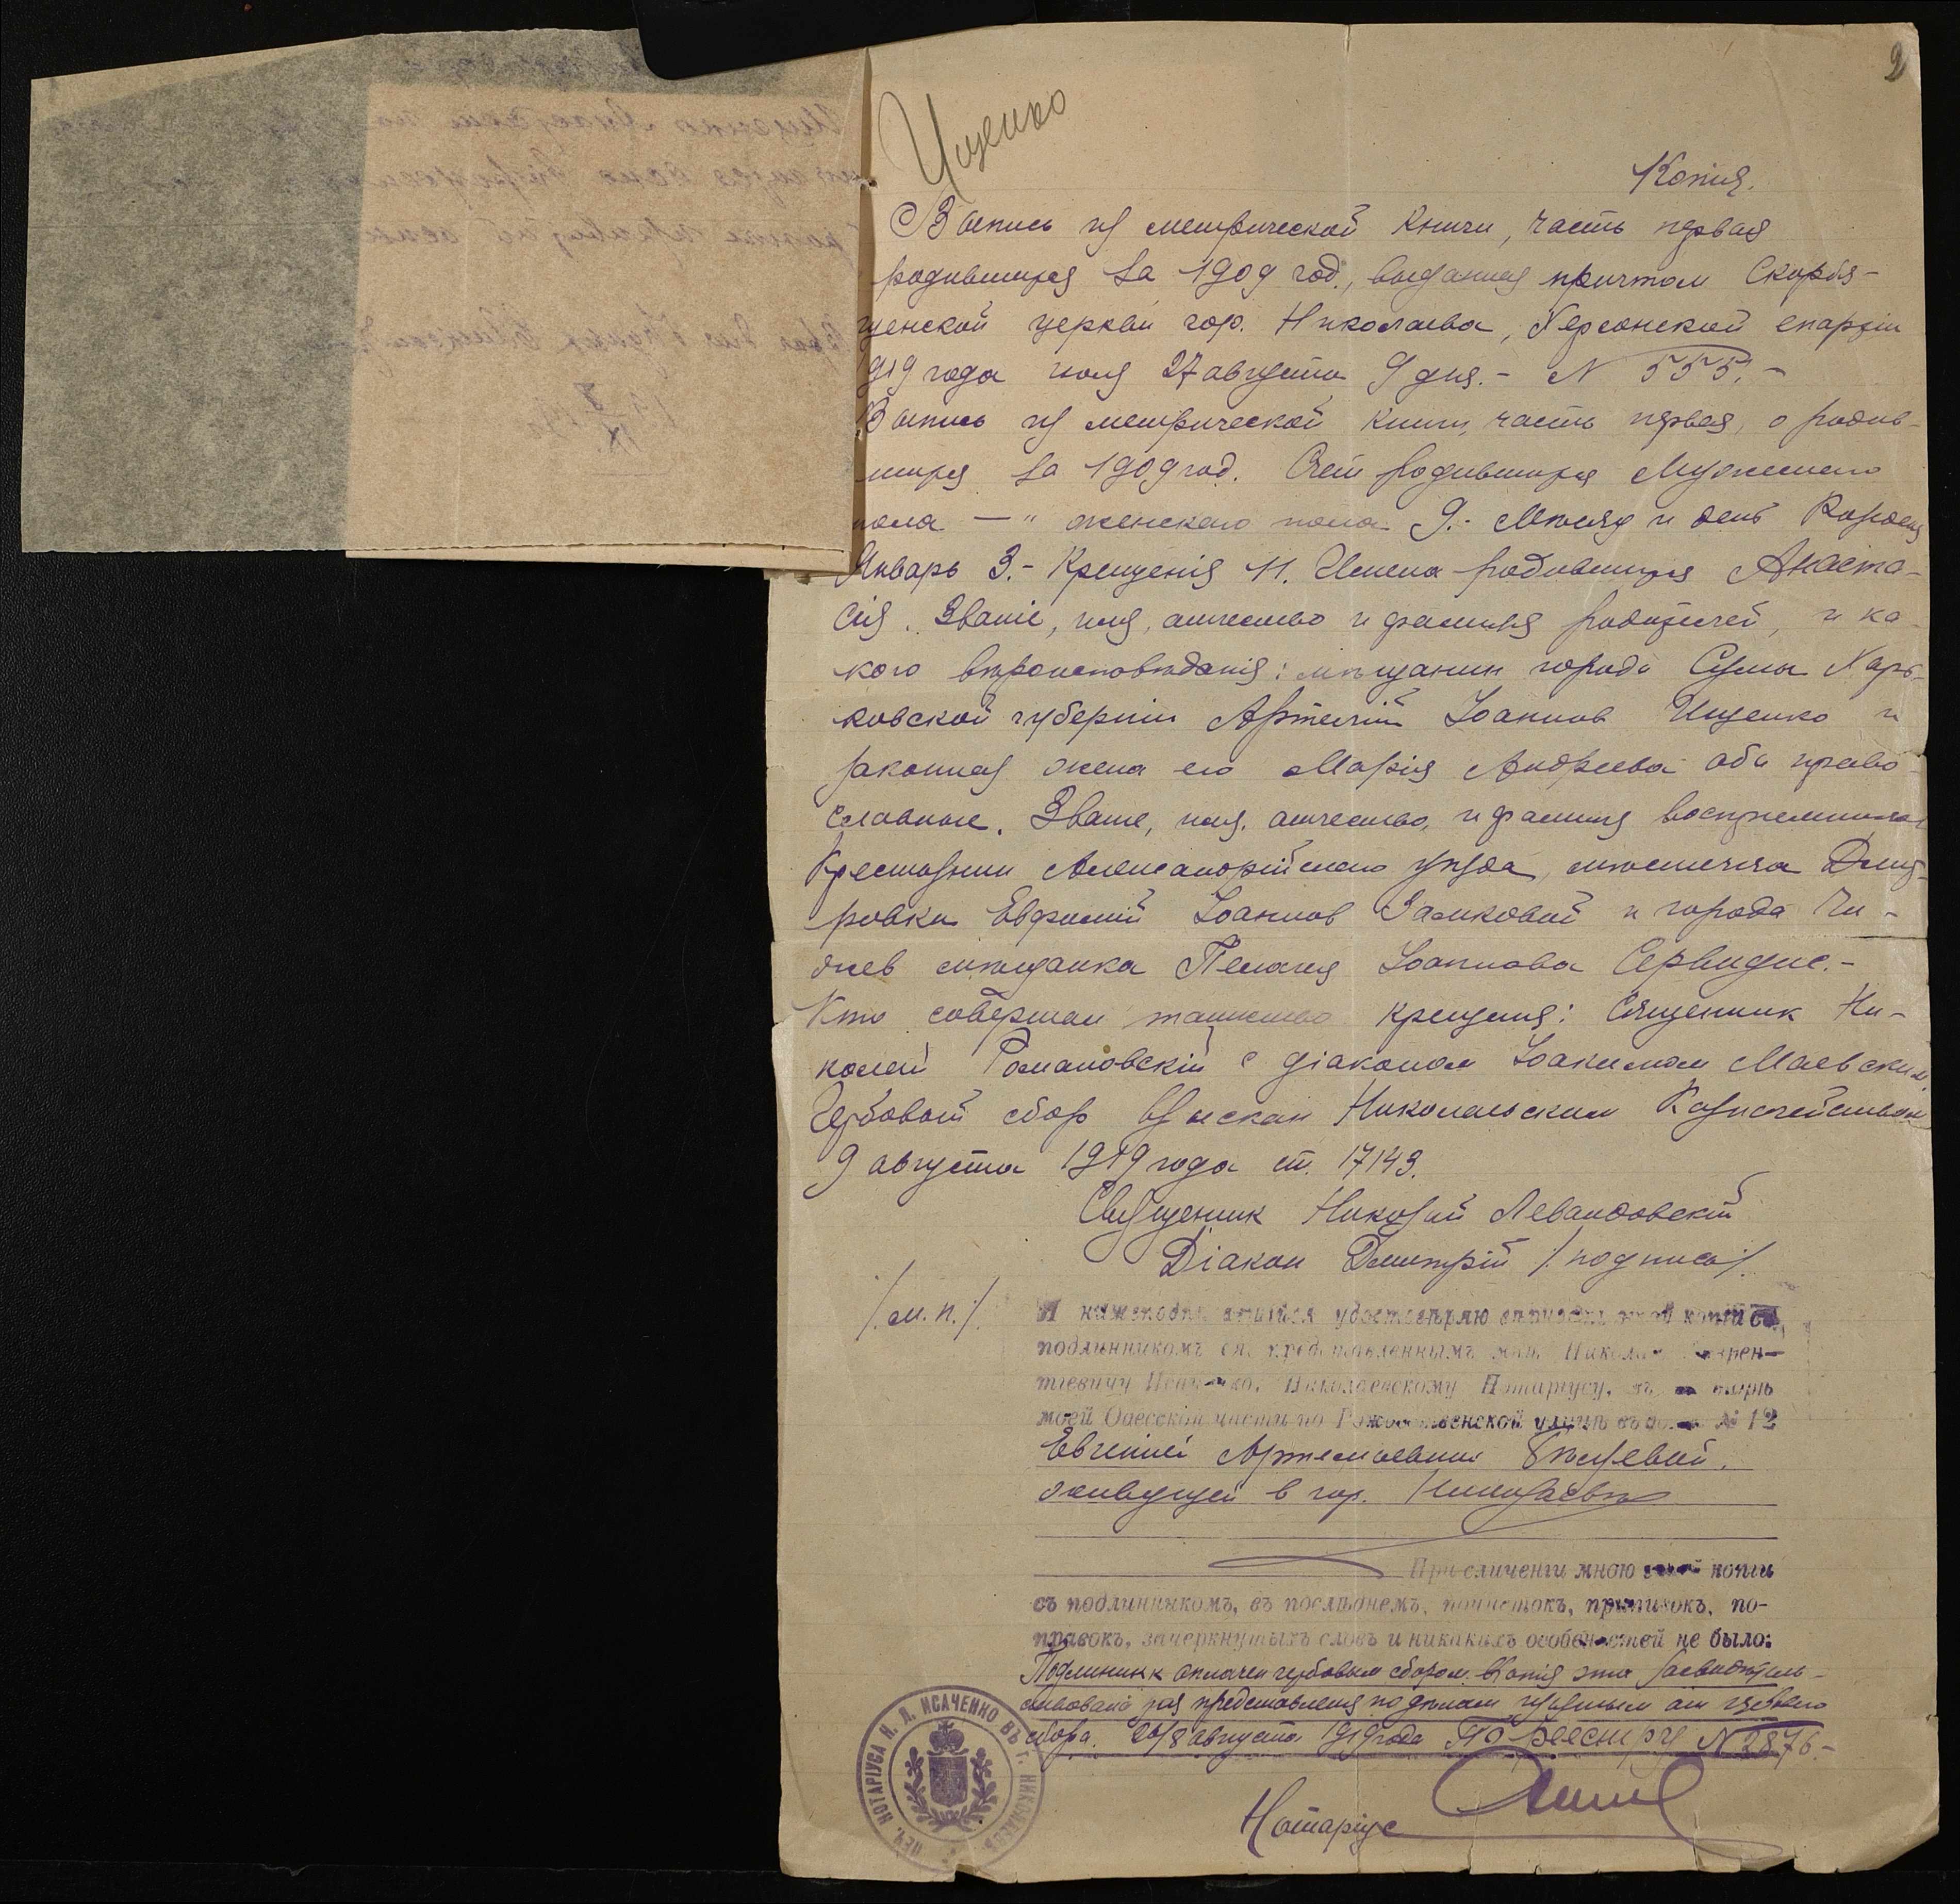 2
Ищенко
Копія.
Выпись из метрической книги, часть первая
родившихся за 1909 год, выданная причтом Скорбя-
щенской церкви гор. Николаева, Херсонской епархіи
919 года июля 27 августа 9 дня.- N 555.-
Выпись из метрической книги, часть первая, о родив-
шихся за 1909 год. Счет родившихся Мужескаго
пола — " женскаго пола 9.- Мѣсяц и день Рожденія
Январь 3.- Крещенія 11. Имена родившихся Анаста-
сія. Званіе, имя, отчество и фамилія родителей, и ка-
кого вѣроисповѣданія: мѣщанин города Сумы Харь-
ковской губерніи Артемій Іоаннов Ищенко и
законная жена его Марія Андреева оба право-
славные. Званіе, имя, отчество, и фамилія воспріемников
Крестьянин Александрійскаго уѣзда, мѣстечка Дмит-
ровки Евфимій Іоаннов и города Ки-
мѣщанка Пелагия Іоаннова
Кто совершал таинство крещенія: Священник Ни-
колай Романовскій с діаконом Іоакимом Маевским.
Гербовый сбор взыскан Николаевским Казначейством
9 августа 1919 года ст. 17143.
Священник Николай Левандовскій
Діакон Дмитрій /подпись/.
/м. п./.
Я нижеподписавшійся удостовѣряю вѣрность этой копіи съ
подлинникомъ ея, представленнымъ мнѣ, Николаю Лаврен-
тіевичу Исаченко, Николаевскому Нотаріусу, въ конторѣ
моей Одесской части по Рождественской улицѣ въ домѣ № 12
Евгеніей Артемьевной
живущей в гор. Николаевѣ
При сличеніи мною этой копіи
съ подлинникомъ, въ послѣднемъ, почистокъ, приписокъ, по-
правокъ, зачеркнутыхъ словъ и никакихъ особенностей не было:
Подлинник оплачен гербовым сбором. Копія эта засвидѣтель-
ствована для представленія по дѣлам изъятым от гербового
сбора. 26/8 августа 1919 года По реестру N 2876.-
Нотаріус
ПЕЧ. НОТАРІУСА Н. Л. ИСАЧЕНКО ВЪ Г. НИКОЛАЕВѢ